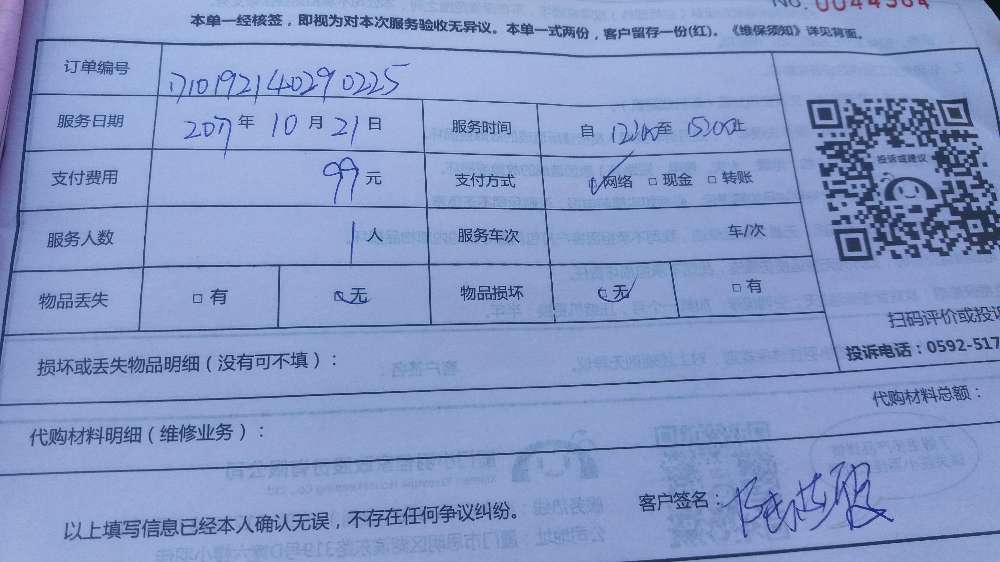 NO. 0044564
本单一经核签，即视为对本次服务验收无异议。本单一式两份，客户留存一份(红)。《维保须知》详见背面。
订单编号 1710192140290225
服务日期 2017年10月21日 服务时间 自12:00至15:00止
支付费用 99元 支付方式 ☑网络 □现金 □转账
服务人数 1 服务车次 车/次
物品丢失 □有 ☑无 物品损坏 ☑无 □有
投诉或建议
扫码评价或投诉
投诉电话：0592-517
损坏或丢失物品明细（没有可不填）：
代购材料明细（维修业务）： 代购材料总额：
以上填写信息已经本人确认无误，不存在任何争议纠纷。 客户签名：